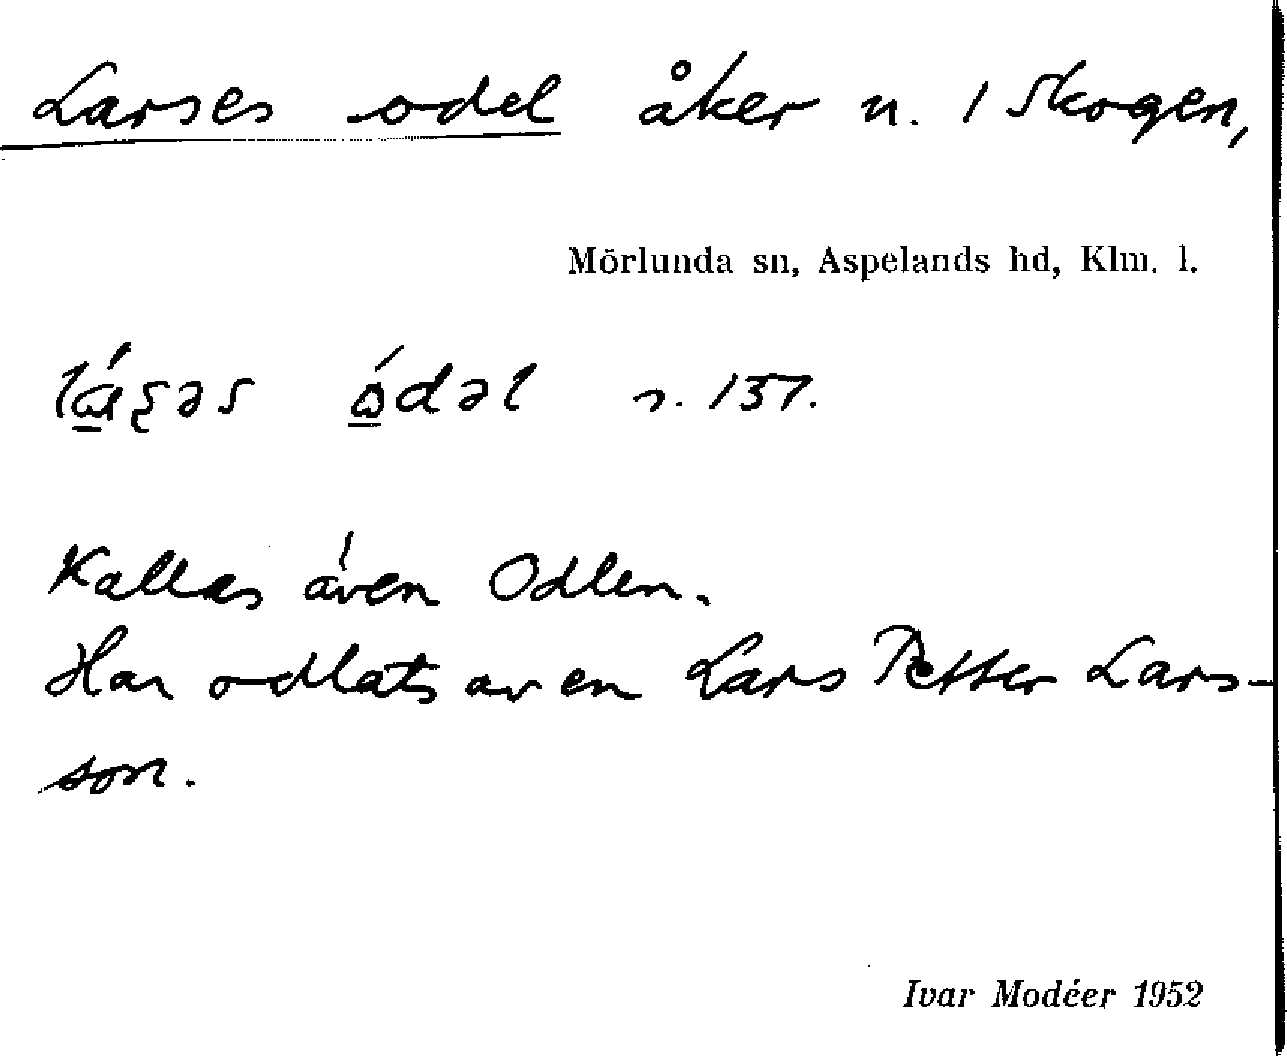 Larses odel åker n. 1 Skogen,
Mörlunda sn, Aspelands hd, Klm. l.
ódəl n. 137.
Kallas även Odlen.
Har odlats av en Lars Petter Lars-
son.
Ivar Modéer 1952